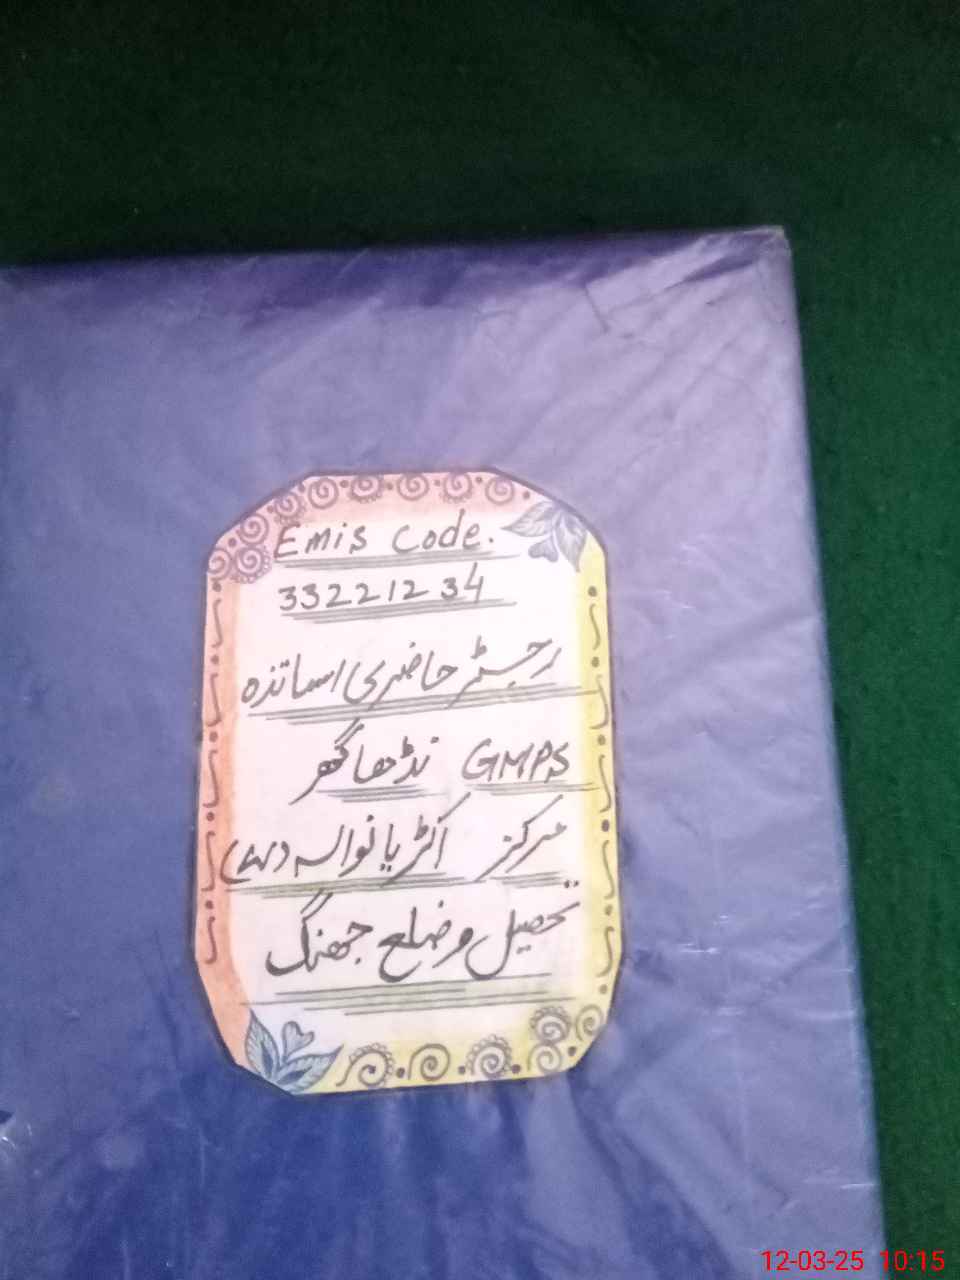 Emis Code.
33221234
رجسٹر حاضری اساتذہ
GMPS نڈھا گھر
مرکز اکڑیانوالہ
تحصیل و ضلع جھنگ
12-03-25 10:15